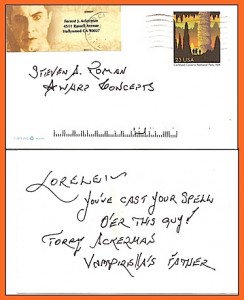 Forrest J Ackerman
4511 Russell Avenue
Hollywood CA 90027
23 USA
Carlsbad Caverns National Park
STEVEN A. ROMAN
AWARD CONCEPTS
LORELEI
YOU'VE CAST YOUR SPELL
O'ER THIS GUY!
FORRY ACKERMAN
VAMPIRELLA'S FATHER